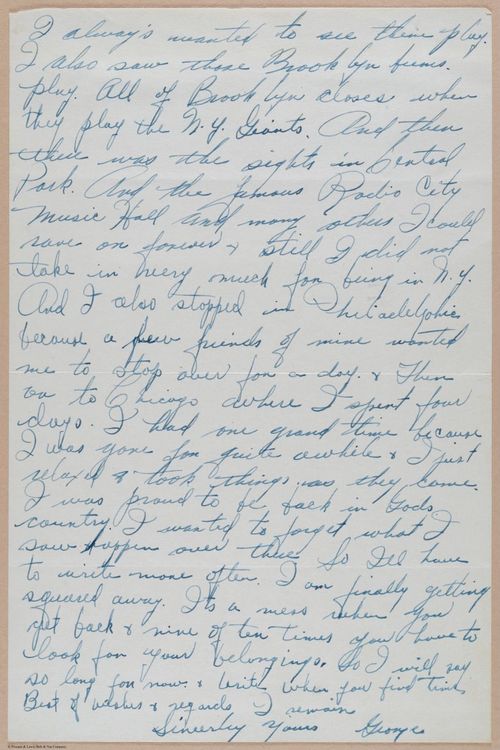 I always wanted to see them play.
I also saw those Brooklyn bums
play. All of Brooklyn closes when
they play the N.Y. Giants. And then
there was the sights in Central
Park. And the famous Radio City
Music Hall and many others I could
rave on forever & still I did not
take in very much for being in N.Y.
And I also stopped in Philadelphia
because a few friends of mine wanted
me to stop over for a day. & Then
on to Chicago where I spent four
days. I had one grand time because
I was gone for quite awhile & I just
relaxed & took things as they came.
I was proud to be back in Gods
country I wanted to forget what I
saw happen over there. So Ill have
to write more often. I am finally getting
squared away. Its a mess when you
get back & nine of ten times you have to
look for your belongings. So I will say
so long for now. & Write when you find time
Best of wishes & regards I remain
Sincerley Yours George